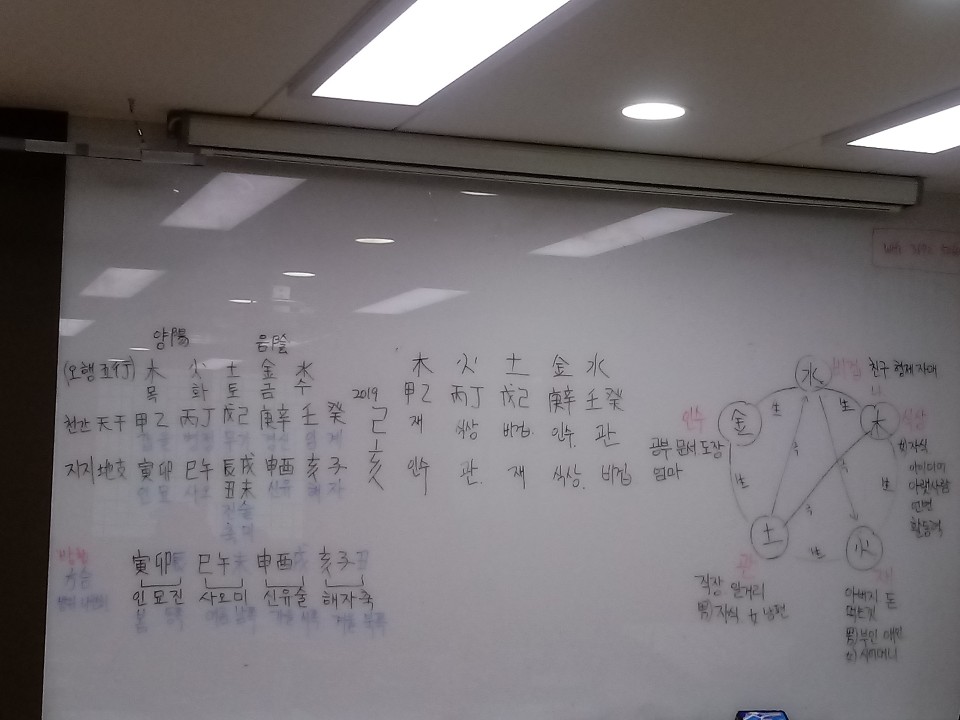 양陽 음陰
(오행 五行) 木 火 土 金 水
목 화 토 금 수
천간 天干 甲乙 丙丁 戊己 庚辛 壬癸
지지 地支 寅卯 巳午 辰戌 申酉 亥子
丑未
인묘 사오 신유 해자
진술
축미
寅卯辰 巳午未 申酉戌 亥子丑
인묘진 사오미 신유술 해자축
2019
己
亥
木 火 土 金 水
甲乙 丙丁 戊己 庚辛 壬癸
재 식상 비겁. 인수. 관
인수 관. 재 식상. 비겁
水 비겁 친구 형제 자매
나
金 인수
공부 문서 도장
엄마
木 식상
女)자식
아이디어
아랫사람
언변
활동력
生 生
生 生
生
극
土
관
직장 일거리
男)자식 女 남편
火
아버지 돈
먹는것
男)부인 애인
女)시어머니